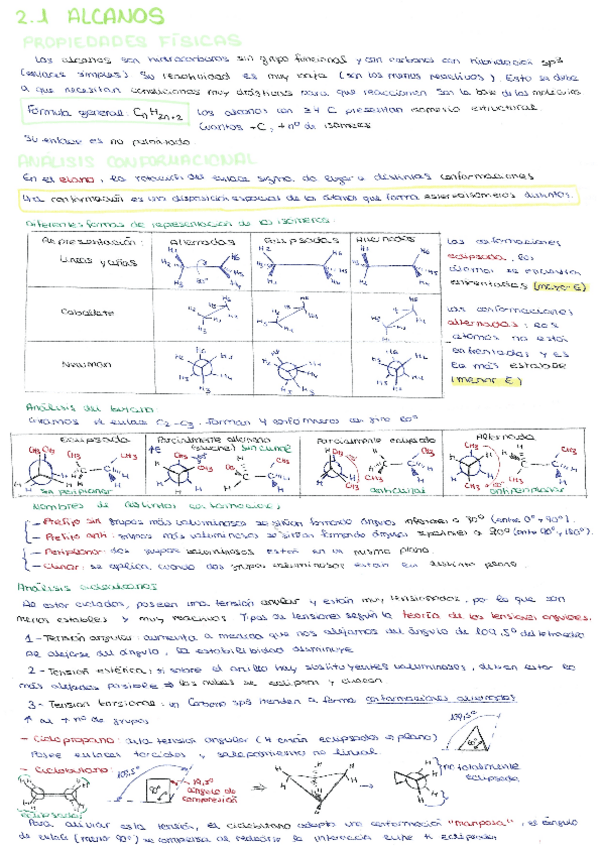 2.1 ALCANOS
PROPIEDADES FÍSICAS
Los alcanos son hidrocarburos sin grupo funcional y con carbonos con hibridación sp3
(enlaces simples) Su reactividad es muy baja (son los menos reactivos). Esto se debe
a que necesitan condiciones muy drásticas para que reaccionen Son la base de las moléculas
Fórmula general: CnH2n+2 Los alcanos con ≥4 C presentan isomería estructural
Cuantos + C, + nº de isómeros
Su enlace es no polarizado
ANÁLISIS CONFORMACIONAL
En el etano, la rotación del enlace sigma da lugar a distintas conformaciones
Una conformación es una disposición espacial de los átomos que forma estereoisómeros distintos.
Diferentes formas de representación de los isómeros:
Representación: Alternadas Eclipsadas Alternadas
Líneas y cuñas
Caballete
Newman
Las conformaciones
eclipsada, los
átomos se encuentran
enfrentados (mayor E)
Las conformaciones
alternadas: los
átomos no están
enfrentados y es
la más estable
(menor E)
Análisis del butano
Giramos el enlace C2-C3. Forman 4 confórmeros con giro 60º
Eclipsada Parcialmente alternada Parcialmente eclipsado Alternada
sin periplanar anticlinal antiperiplanar
Nombres de distintas conformaciones
- Prefijo sin grupos más voluminosos se sitúan formando ángulos inferiores a 90º (entre 0º y 90º).
- Prefijo anti: grupos más voluminosos se sitúan formando ángulos superiores a 90º (entre 90º y 180º).
- Periplanar: dos grupos voluminosos están en un mismo plano.
- Clinar: se aplica, cuando dos grupos voluminosos están en distinto plano.
Análisis cicloalcanos
Al estar ciclados, poseen una tensión anular y están muy tensionados, por lo que son
menos estables y muy reactivos Tipos de tensiones según la teoría de las tensiones angulares.
1- Tensión angular: aumenta a medida que nos alejamos del ángulo de 109,5º del tetraedro
Al alejarse del ángulo, la estabilidad disminuye
2- Tensión estérica: si sobre el anillo hay sustituyentes voluminosos, deben estar lo
más alejados posible ⇒ las nubes se eclipsan y chocan
3- Tensión torsional: un Carbono sp3 tienden a forma conformaciones alternadas
- Ciclopropano: alta tensión angular (H están eclipsados ⇒ plano)
Posee enlaces torcidos y solapamiento no lineal.
109,5º
60º
- Ciclobutano:
109,5º
90º
19,5º
ángulo de
compresión
no totalmente
eclipsado
eclipsados
Para aliviar esta tensión, el ciclobutano adopta una conformación "mariposa", el ángulo
de enlace (menor 90º) se compensa al reducir la interacción entre H eclipsados